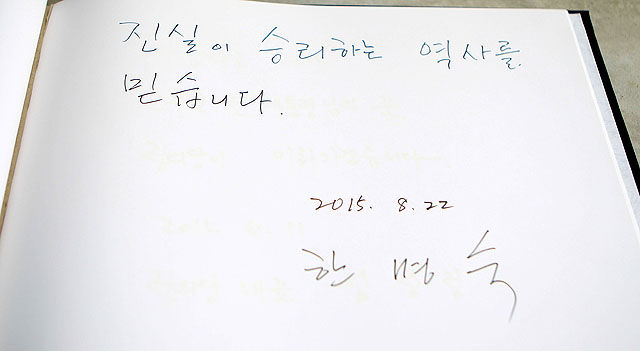 진실이 승리하는 역사를
믿습니다.
2015. 8. 22
한 명 숙